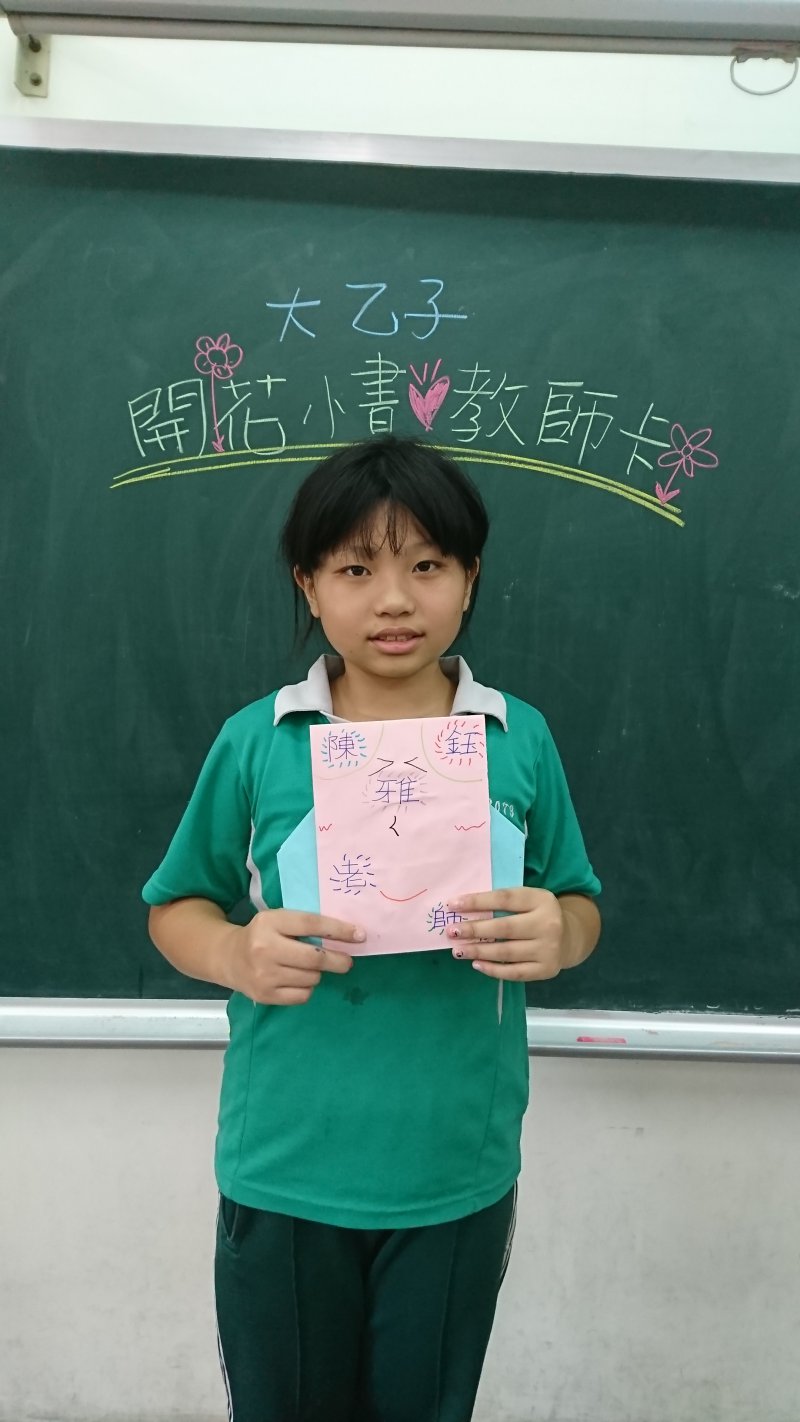 大乙子
開花小書教師卡
陳鈺
雅
老
師